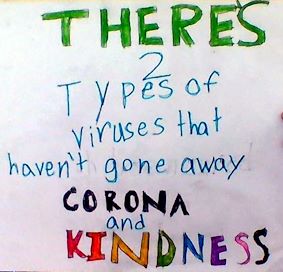 THERE'S
2
Types of
viruses that
haven't gone away
CORONA
and
KINDNESS